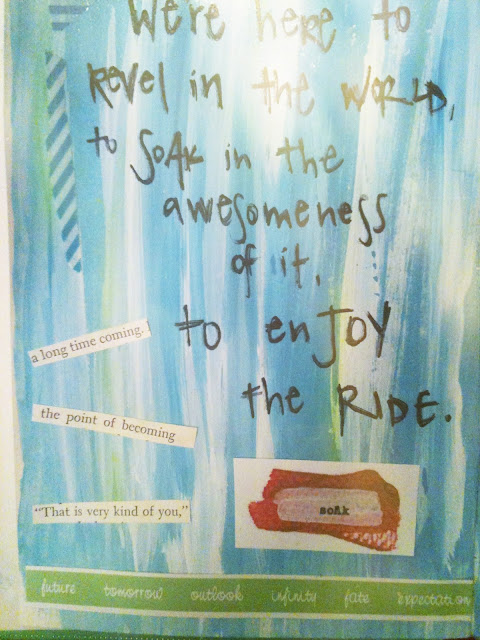 We're here to
Revel in the WORLD,
to SOAK in the
awesomeness
of it,
to enJOY
the RIDE.
a long time coming.
the point of becoming
"That is very kind of you,"
soak
future tomorrow outlook infinity fate expectation